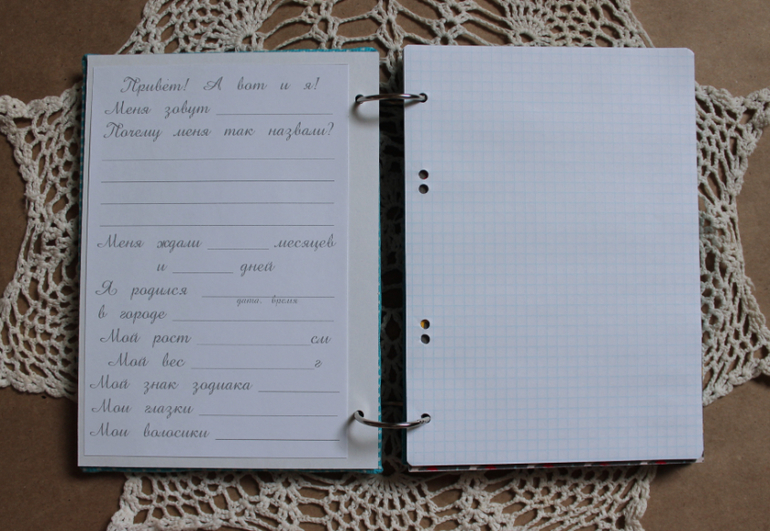 Привет! А вот и я!
Меня зовут
Почему меня так назвали?
Меня ждали месяцев
и дней
Я родился
дата, время
в городе
Мой рост см
Мой вес г
Мой знак зодиака
Мои глазки
Мои волосики